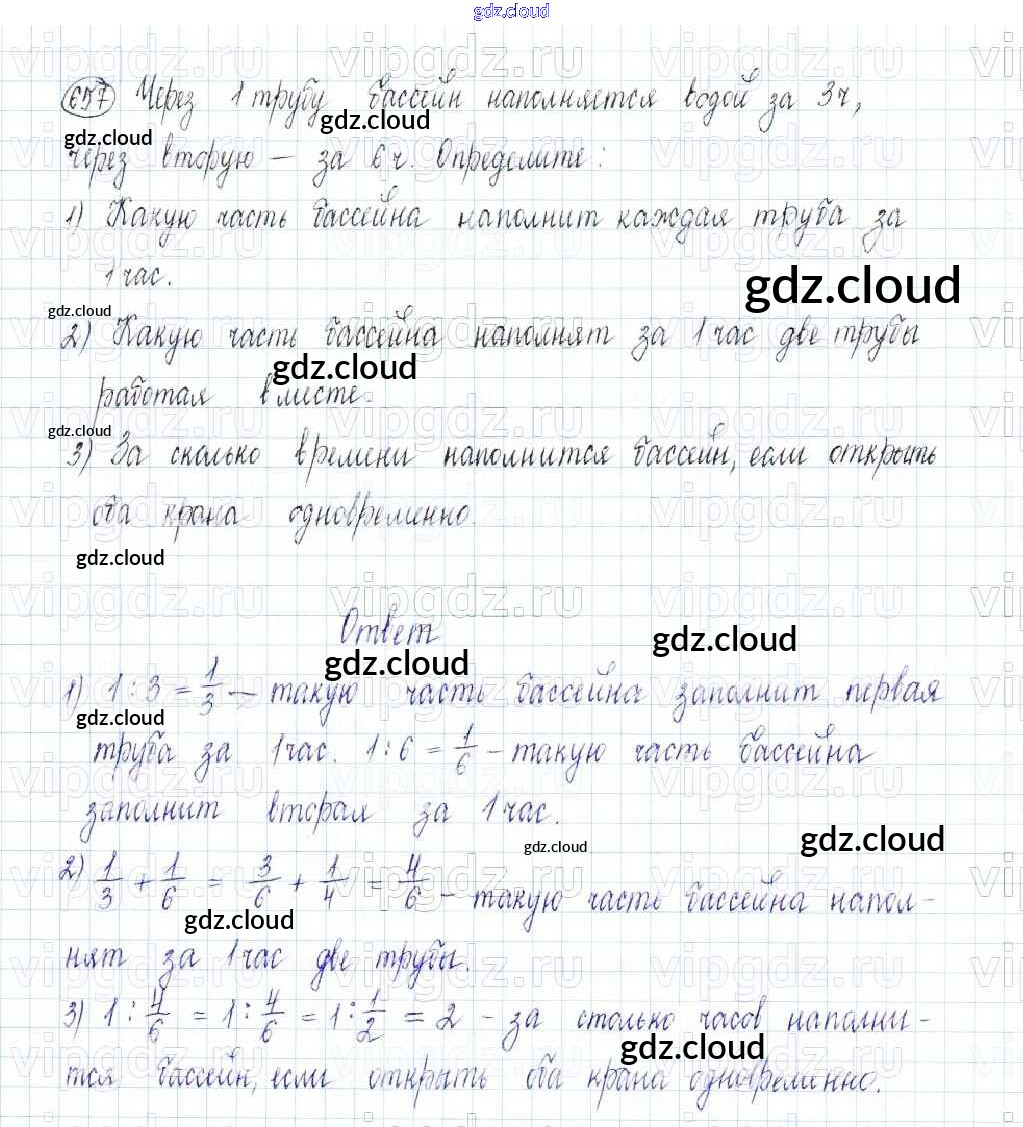 gdz.cloud
657 Через 1 трубу бассейн наполняется водой за 3 ч,
gdz.cloud
gdz.cloud
через вторую — за 6 ч. Определите:
1) Какую часть бассейна наполнит каждая труба за
1 час.
gdz.cloud
gdz.cloud
2) Какую часть бассейна наполнят за 1 час две трубы
gdz.cloud
работая вместе.
gdz.cloud
3) За сколько времени наполнится бассейн, если открыть
оба крана одновременно.
gdz.cloud
Ответ
gdz.cloud
gdz.cloud
1) 1 : 3 = 1/3 — такую часть бассейна заполнит первая
gdz.cloud
труба за 1 час. 1 : 6 = 1/6 - такую часть бассейна
заполнит вторая за 1 час.
gdz.cloud
gdz.cloud
2) 1/3 + 1/6 = 3/6 + 1/4 = 4/6 - такую часть бассейна напол-
gdz.cloud
нят за 1 час две трубы.
3) 1 : 4/6 = 1 : 4/6 = 1 : 1/2 = 2 - за столько часов наполни-
gdz.cloud
тся бассейн, если открыть оба крана одновременно.
vipgdz.ru